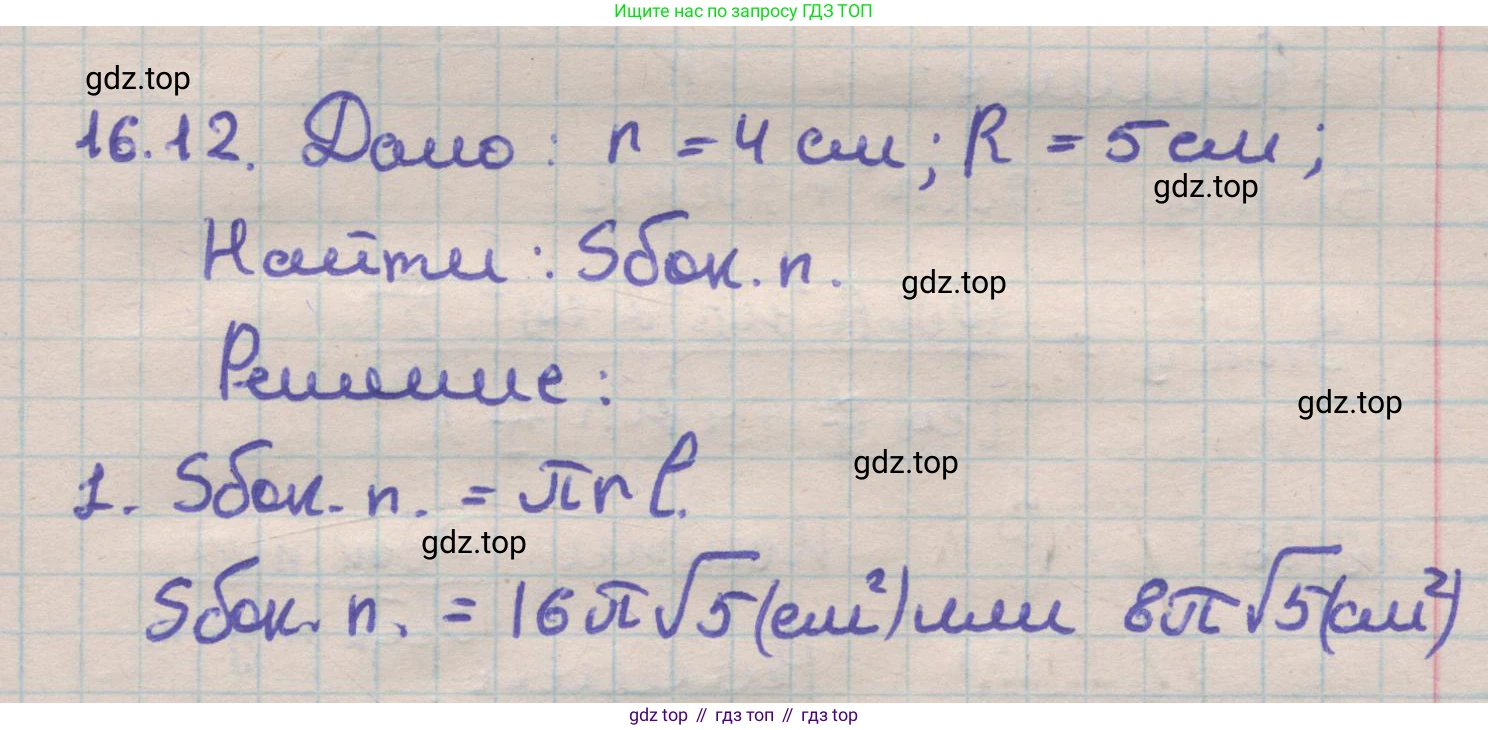 Ищите нас по запросу ГДЗ ТОП
gdz.top
16.12. Дано: r = 4 см; R = 5 см;
gdz.top
Найти: Sбок. п.
gdz.top
Решение:
gdz.top
gdz.top
1. Sбок. п. = πrl.
gdz.top
Sбок. п. = 16π√5(см²) или 8π√5(см²)
gdz top // гдз топ // гдз top